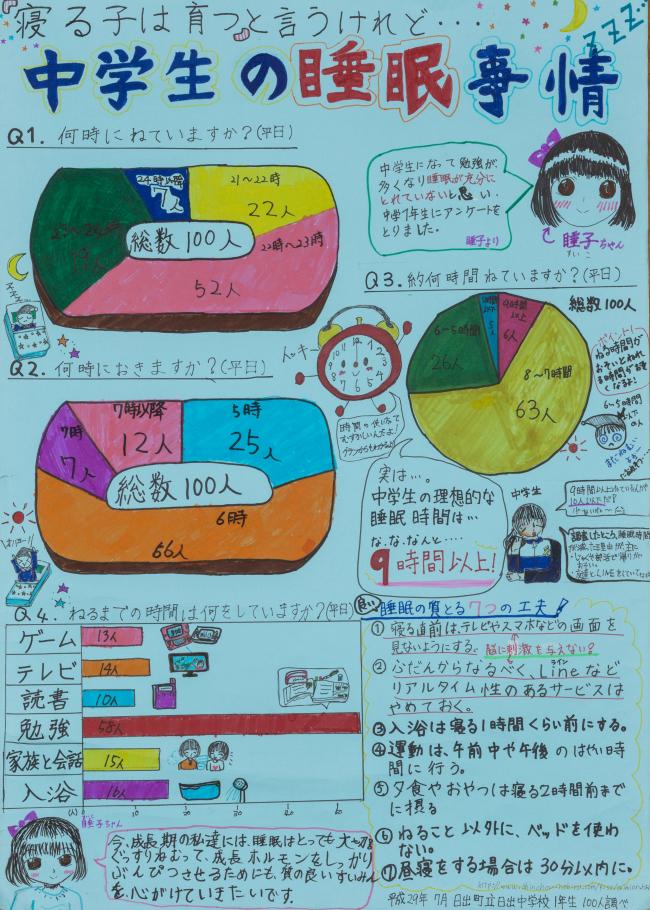 寝る子は育つと言うけれど・・・・
zzz...
中学生の睡眠事情
Q1. 何時にねていますか?(平日)
24時以降
7人
21〜22時
22人
22時〜23時
52人
総数100人
中学生になって勉強が
多くなり睡眠が充分に
とれていないと思い、
中学1年生にアンケートを
とりました。
睡子より
睡子ちゃん
すいこ
Q2. 何時におきますか?(平日)
7時以降
12人
5時
25人
7時
7人
6時
56人
総数100人
Q3. 約何時間ねていますか?(平日)
総数100人
9時間
以上
6人
8〜7時間
63人
6〜5時間
26人
5人
ポイント!
ねる時間が
おそいとねれ
る時間が短
くなるよ!
6〜5時間
実は…。
中学生の理想的な
睡眠時間は…
な、な、なんと‥‥
9時間以上!
中学生
Q4. ねるまでの時間は何をしていますか?(平日)
ゲーム 13人
テレビ 14人
読書 10人
勉強 58人
家族と会話 15人
入浴 16人
(人) 0 10 20 30 40 50 60
良い睡眠の質とる7つの工夫!
①寝る直前は、テレビやスマホなどの画面を
見ないようにする。脳に刺激を与えない?
②ふだんからなるべく、Lineなど
ライン
リアルタイム性のあるサービスは
やめておく。
③入浴は寝る1時間くらい前にする。
④運動は、午前中や午後のはやい時
間に行う。
⑤夕食やおやつは寝る2時間前まで
に摂る
⑥ねること以外に、ベッドを使わ
ない。
⑦昼寝をする場合は30分以内に。
睡子ちゃん
今、成長期の私達には、睡眠はとっても大切
ぐっすりねむって、成長ホルモンをしっかり
ぶんぴつさせるためにも、質の良いすいみん
を、心がけていきたいです。
平成29年 7月 日出町立日出中学校1年生 100人調べ